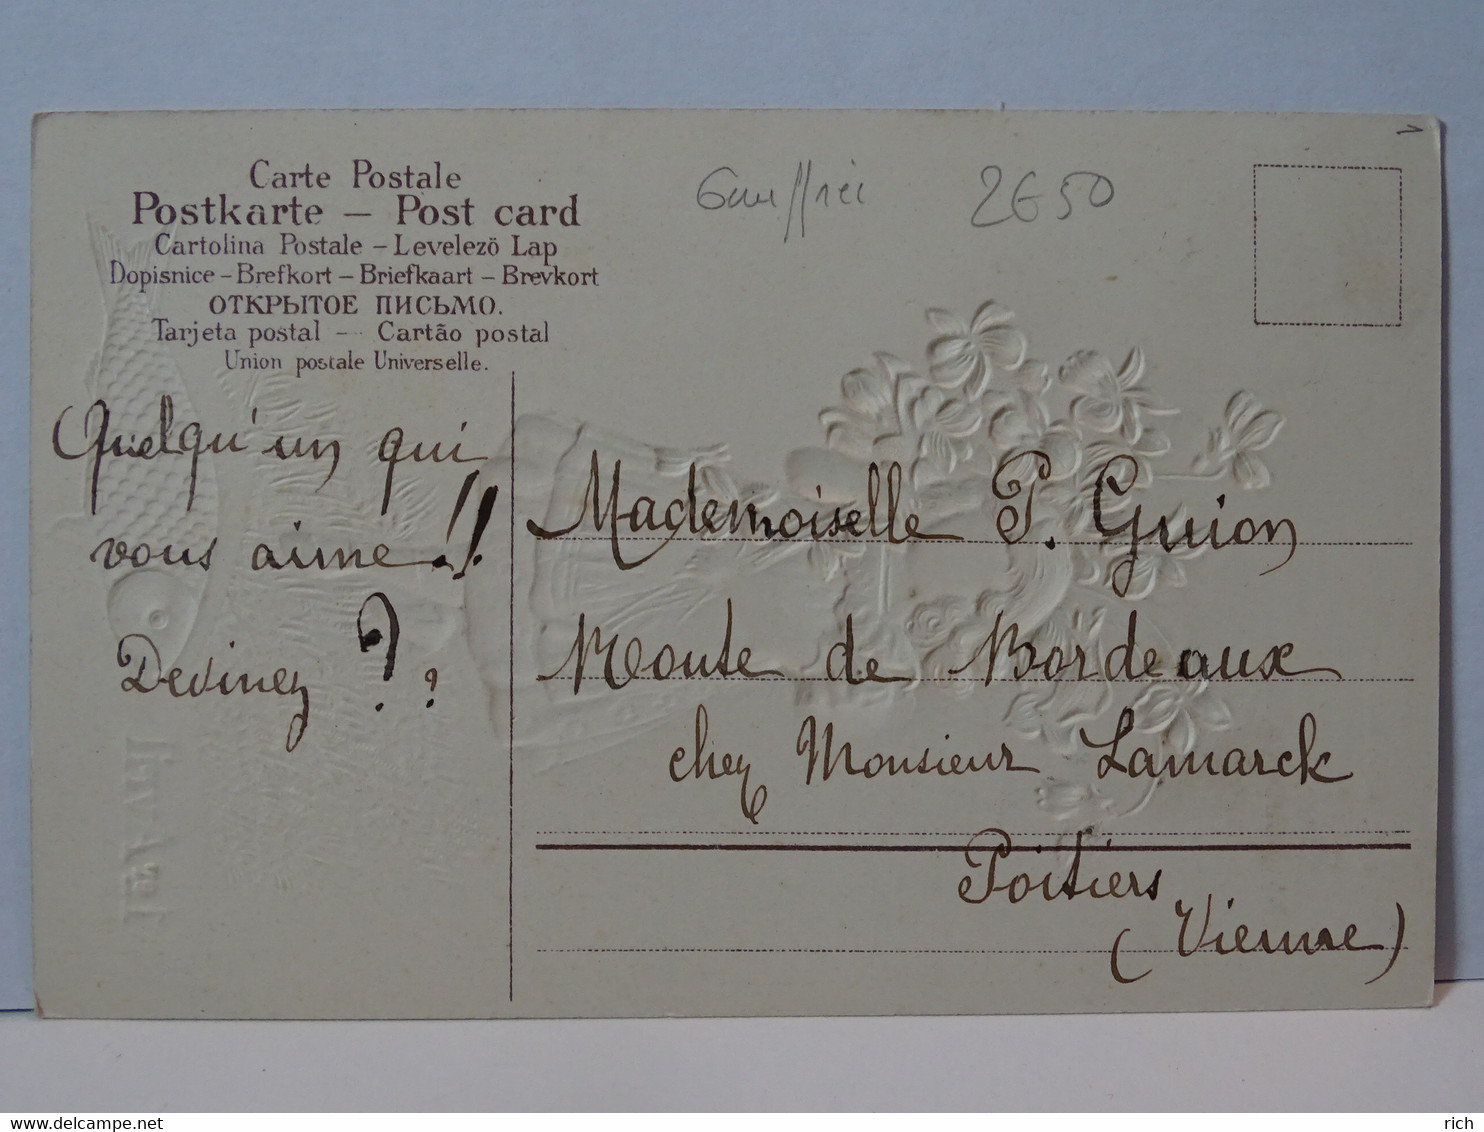 Carte Postale
Postkarte – Post card
Cartolina Postale – Levelezö Lap
Dopisnice – Brefkort – Briefkaart – Brevkort
ОТКРЫТОЕ ПИСЬМО.
Tarjeta postal – Cartão postal
Union postale Universelle.
2G50
Quelqu'un qui
vous aime!!
Devinez??
Mademoiselle P. Guion
Route de Bordeaux
chez Monsieur Lamarck
Poitiers
(Vienne)
delcampe.net
rich